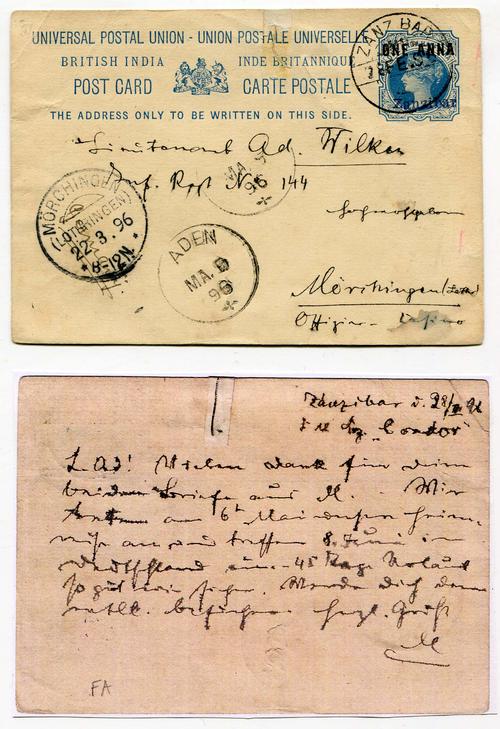 UNIVERSAL POSTAL UNION - UNION POSTALE UNIVERSELLE
BRITISH INDIA INDE BRITANNIQUE
POST CARD CARTE POSTALE
THE ADDRESS ONLY TO BE WRITTEN ON THIS SIDE.
ZANZIBAR
ONE ANNA
Zanzibar
Lieutenant Ad. Wilken
Inf. Rgt No 144
MA
96
MÖRCHINGEN
(LOTHRINGEN)
22.3.96
8-12N
ADEN
MA. 9
96
Mörchingen
Offizier-
Zanzibar d. 28/
"Condor"
L. Ad! Vielen Dank für Deine
beiden Briefe aus M. Wir
am 6t Mai unsere Heim-
an und treffen 8. Juni in
Deutschland ein. 45 Tage Urlaub
so gut wie sicher. Werde Dich dann
besuchen. Herzl. Gruß
M
FA